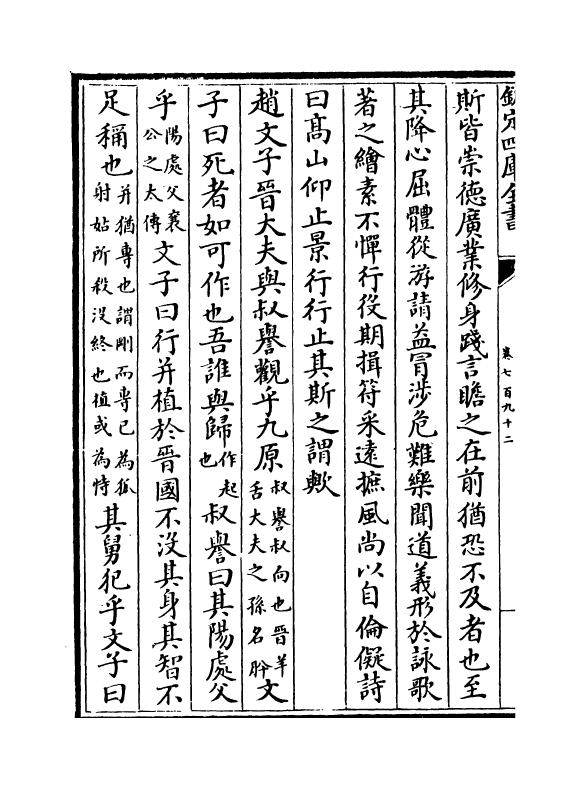 欽定四庫全書
卷七百九十二
斯皆崇德廣業修身踐言瞻之在前猶恐不及者也至
其降心屈體從游請益冐涉危難樂聞道義形於詠歌
著之繪素不憚行役期揖符采遠摭風尚以自倫儗詩
曰髙山仰止景行行止其斯之謂歟
趙文子晉大夫與叔譽觀乎九原叔譽叔向也晉羊舌大夫之孫名肸文
子曰死者如可作也吾誰與歸作起也叔譽曰其陽處父
乎陽處父襄公之太傅文子曰行并植於晉國不沒其身其智不
足稱也并猶專也謂剛而専已為狐射姑所殺沒終也植或為特其舅犯乎文子曰